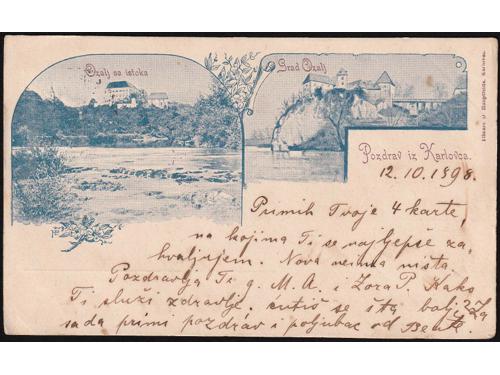 Ozalj sa istoka
Grad Ozalj
Pozdrav iz Karlovca.
12.10.1898.
Primih Tvoje 4 karte,
na kojima Ti se najljepše za
hvaljujem. Nova neima ništa
Pozdravlja Te g. M. A. i Zora P. Kako
Ti služi zdravlje. ćutiš se šta bolje? Za
sada primi pozdrav i poljubac od